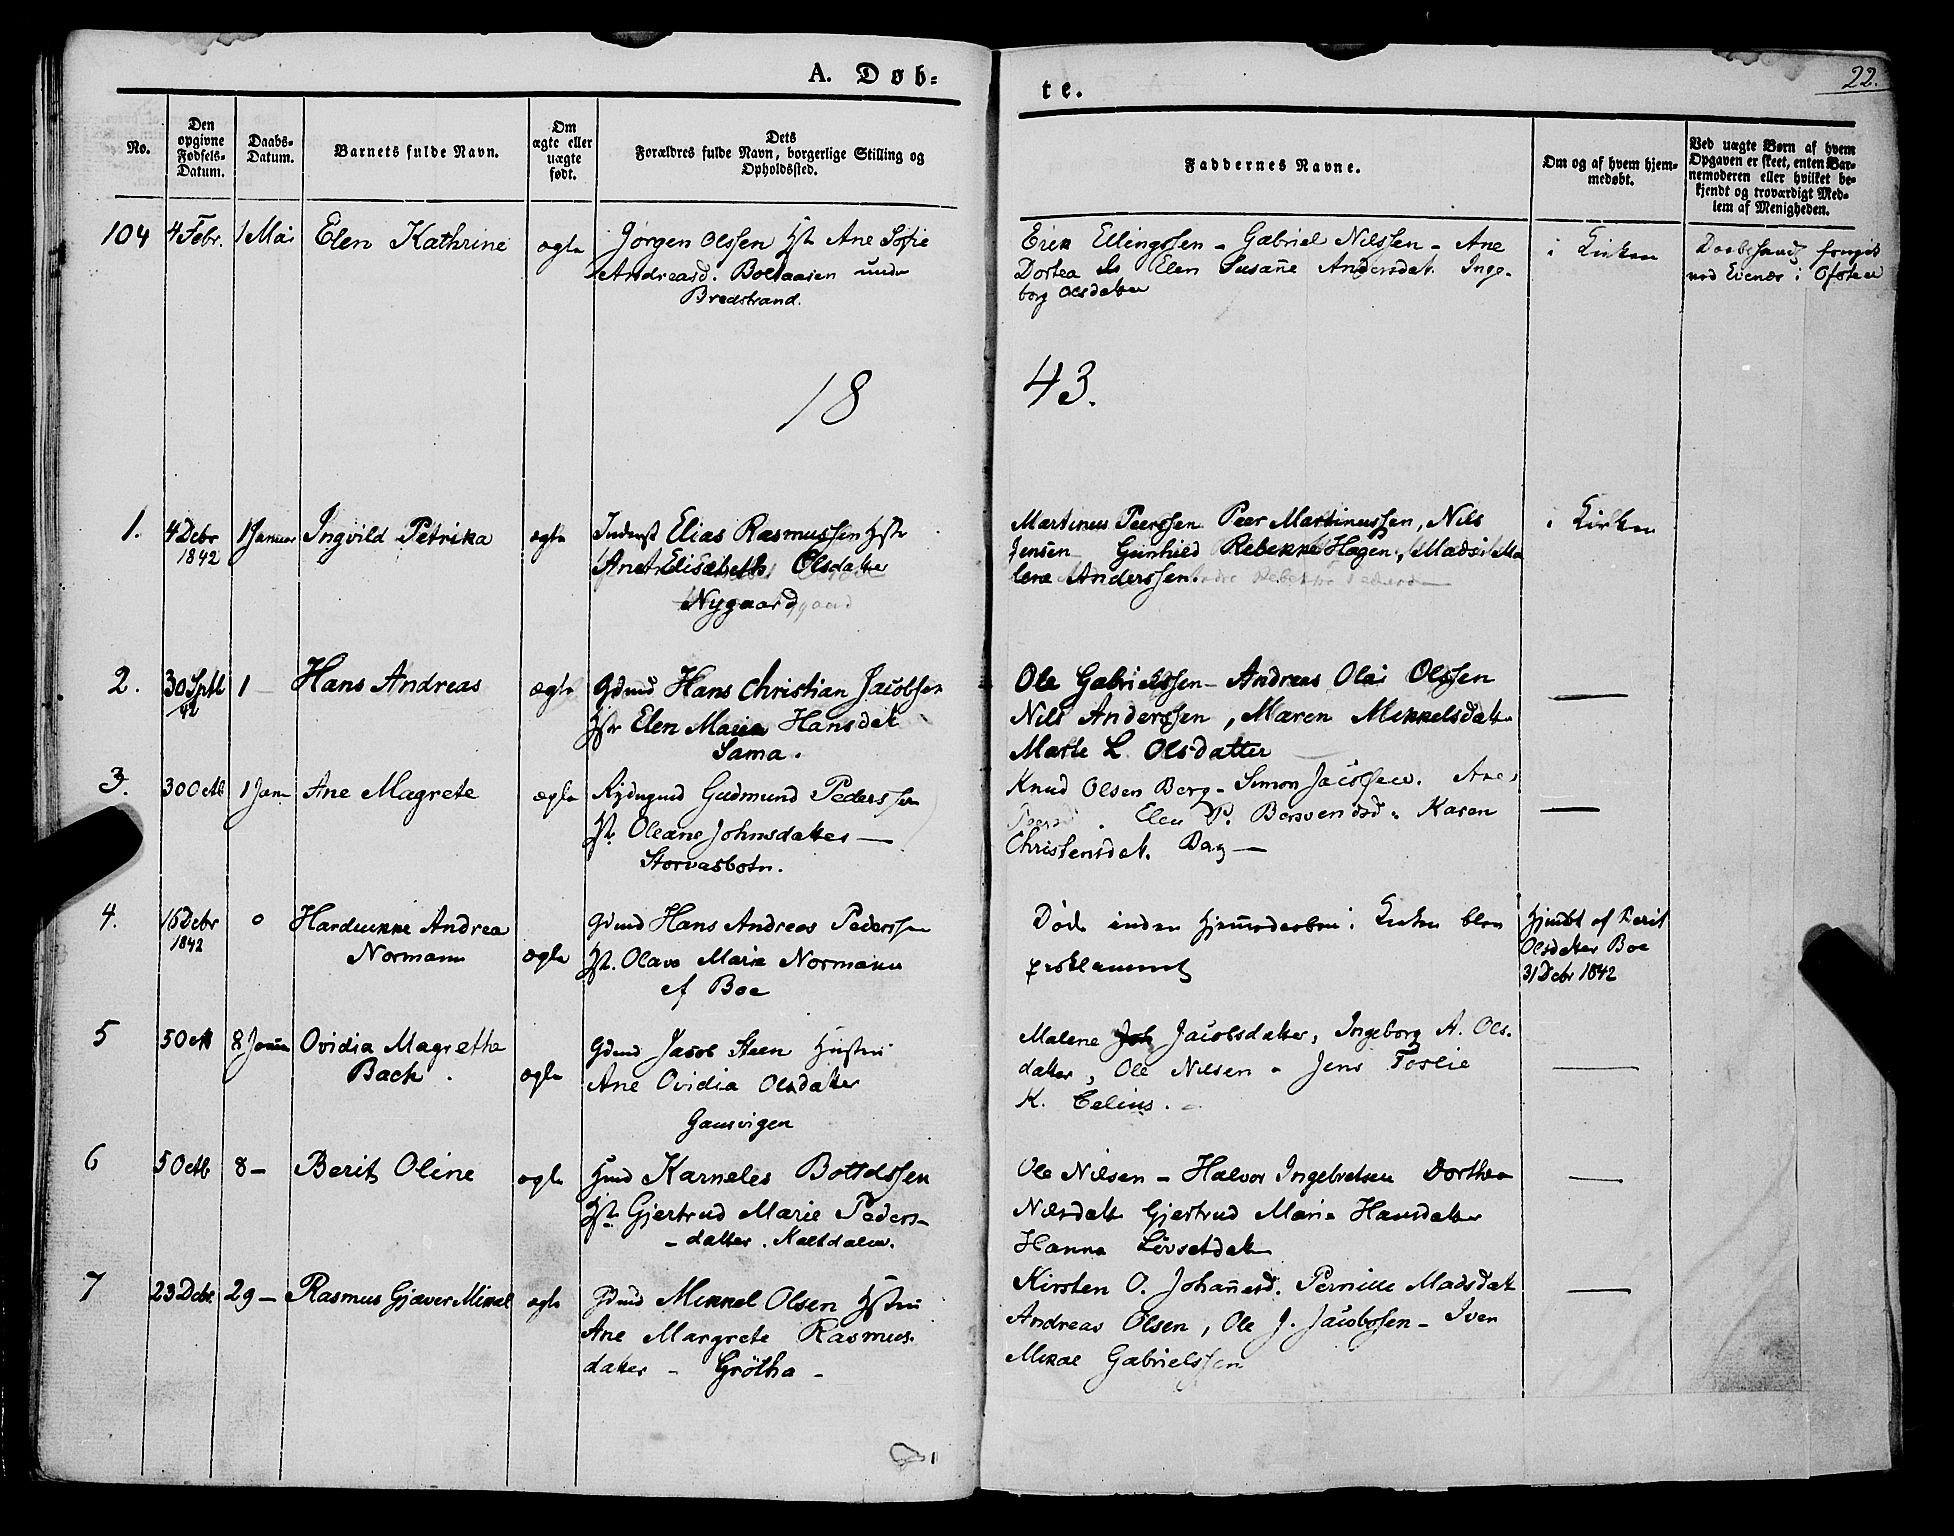 A. Døb=
te.
22.
No.
Den
opgivne
Fødsels-
Datum.
Daabs-
Datum.
Barnets fulde Navn.
Om
ægte eller
uægte
født.
Dets
Forældres fulde Navn, borgerlige Stilling og
Opholdssted.
Faddernes Navne.
Om og af hvem hjem-
medøbt.
Ved uægte Børn af hvem
Opgaven er skeet, enten Bar-
nemoderen eller hvilket be-
kjendt og troværdigt Med-
lem af Menigheden.
104
4 Febr.
1 Mai
Elen Kathrine
ægte
Jørgen Olssen Hst Ane Sofie
Andreasd. Boltaasen under
Bredstrand.
Erik Ellingssen - Gabriel Nilssen - Ane
Dortea Elen Susañe Andersdat. Inge-
borg Olsdatter
i Kirken
ved Evenæs i Ofoten
18
43.
1.
4 Debr
1842
1 Januar
Ingvild Petrika
ægte
Inderst Elias Rasmussen Hstr
Ane Elisabeth Olsdatter
Nygaard
Martinus Peerssen Peer Martinussen, Nils
Jensen Gunhild Rebekke Hagen, Mads Ma
lene Anderssen.
i Kirken
2.
30 Sptb
42
1 —
Hans Andreas
ægte
Gdmd Hans Christian Jacobsen
Hstr Elen Maria Hansdat
Sama.
Ole Gabrielssen - Andreas Olai Olssen
Nils Anderssen, Maren Mikkelsdatter
Marte L Olsdatter
—
3.
30 Octb
1 Jan
Ane Magrete
ægte
Rydngmd Gudmund Pederssen
Hst. Oleane Johnsdatter —
Storvasbotn.
Knud Olsen Berg - Simon Jacobsen. Ane
Elen P. Bersvendsd. Karen
Christensdat. Berg —
—
4.
16 Debr
1842
0
Andrea
Normann
ægte
Gdmd Hans Andreas Pederssen
Hst. Olava Maria Normann
af Boe
Døde inden Hjemmedaaben i Kirken blev
proklameret
Hjmdbt af Berit
Olsdatter Boe
31 Debr 1842
5
5 Octb
8 Janua
Ovidia Magrethe
Back.
ægte
Gdmd Jacob Steen Hustru
Ane Ovidia Olsdatter
Gausvigen
Malene Jacobsdatter, Ingeborg A. Ols-
datter, Ole Nilsen - Jens Foslie
K. Celius.
—
6
5 Octb
8 —
Berit Oline
ægte
Hmd Karneles Bottolssen
Hst. Gjertrud Marie Peders-
- datter. Kaltdalen.
Ole Nilsen - Halvor Ingebretsen Dorthea
Nilsdatt Gjertrud Maria Hansdatter
Hanna Lövsetdatter
—
7
23 Debr.
29 —
Rasmus Gjæver Mikal
ægte
Gdmd Mikkel Olsen Hstru
Ane Margrete Rasmus-
datter - Grötha -
Kirsten O. Johañesd. Pernille Madsdat
Andreas Olsen, Ole J. Jacobssen - Iver
Mikal Gabrielssen
—